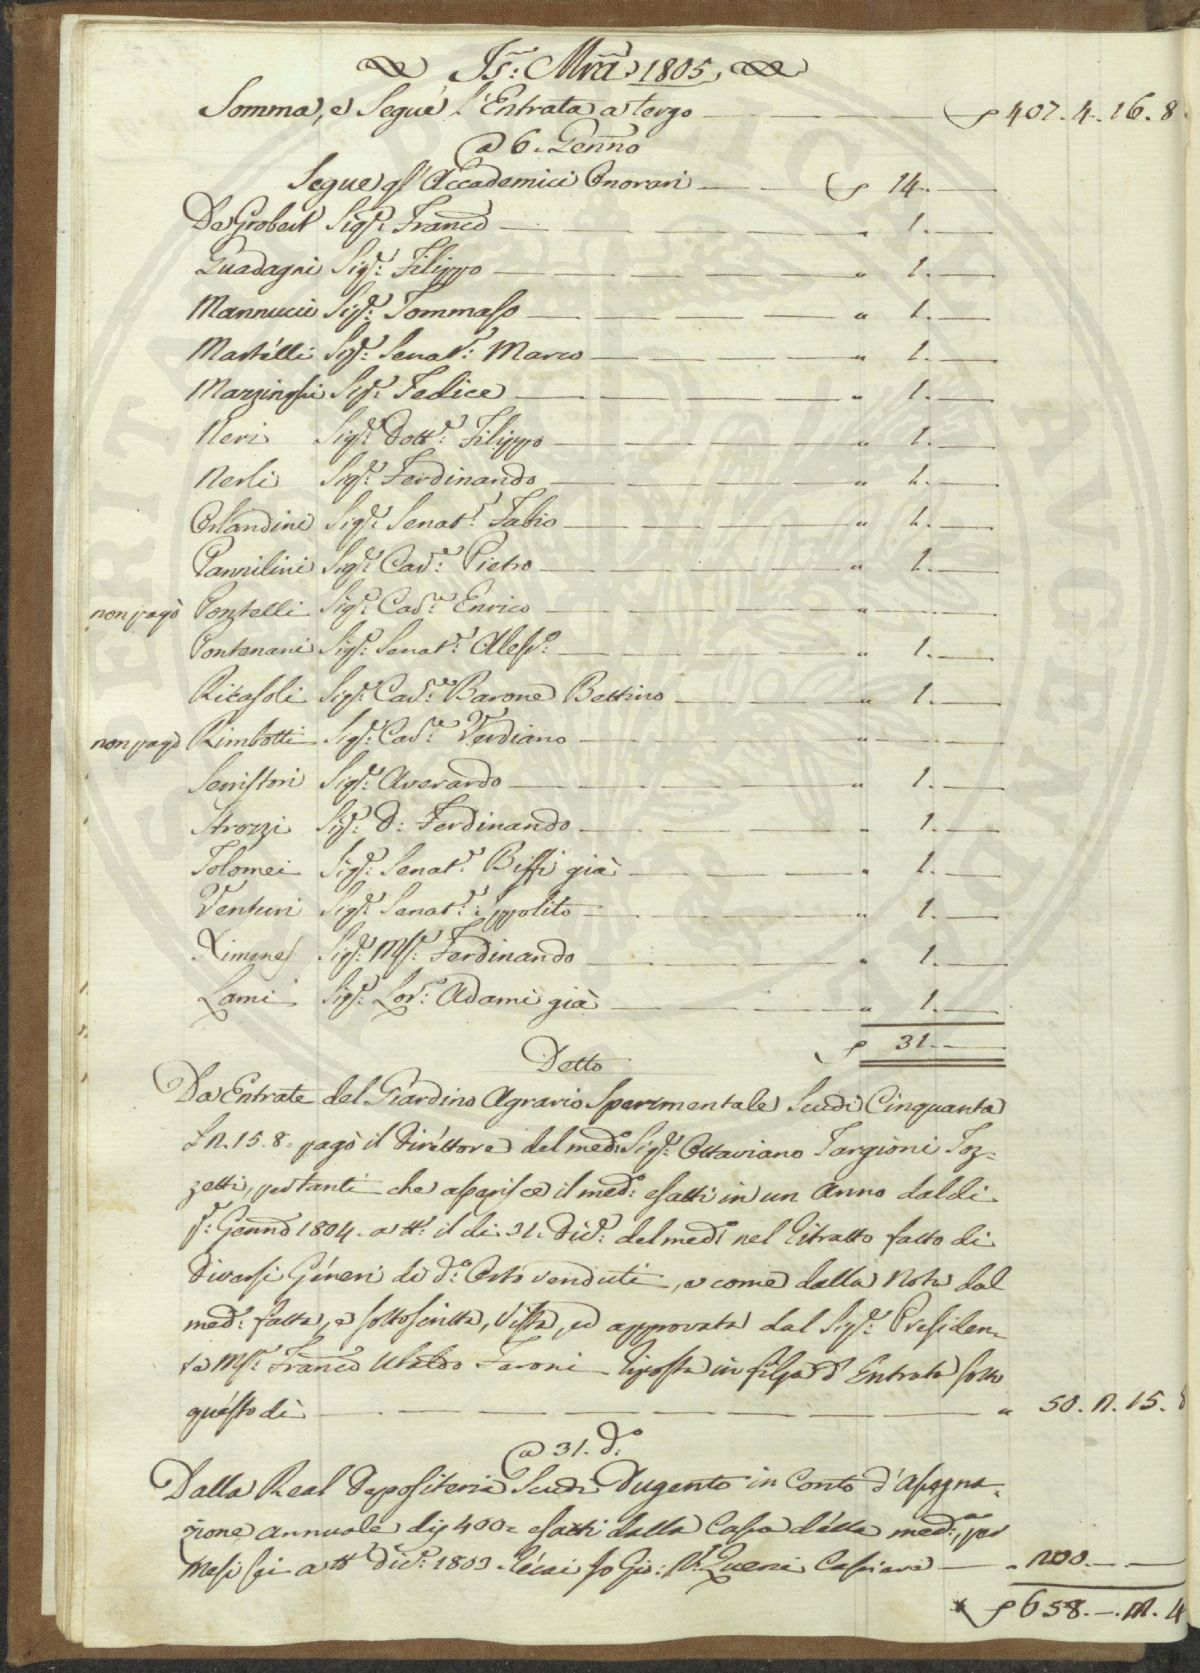 Js: Mrã 1805
Somma, e Segue l'Entrata a tergo — 407. 4. 16. 8
a 6. Genno
Segue gl' Accademici Onorari — 14. —
De Grobert Sigr: Franco — " 1. —
Guadagni Sigr: Filippo — " 1. —
Mannucci Sigr: Tommaso — " 1. —
Martelli Sigr: Senatr: Marco — " 1. —
Marzinghi Sigr: Felice — " 1. —
Neri Sigr: Dottr: Filippo — " 1. —
Nerli Sigr: Ferdinando — " 1. —
Orlandini Sigr: Senatr: Fabio — " 1. —
Pannilini Sigr: Cavre: Pietro — " 1. —
non pagò Pontelli Sigr: Cavre: Enrico — " —
Pontenani Sigr: Senatr: Alesso: — " 1. —
Ricasoli Sigr: Cavre: Barone Bettino — " 1. —
non pagò Rimbotti Sigr: Cavre: Verdiano — " —
Serristori Sigr: Averardo — " 1. —
Strozzi Sigr: D: Ferdinando — " 1. —
Tolomei Sigr: Senatr: Biffi già — " 1. —
Venturi Sigr: Senatr: Ippolito — " 1. —
Ximenes Sigr: Mse: Ferdinando — " 1. —
Lami Sigr: Lor: Adami già — " 1. —
31. —
Detto
Da Entrate del Giardino Agrario Sperimentale Scudi Cinquanta
L 2. 15. 8: pagò il Direttore del medo: Sigr: Ottaviano Targioni Toz=
zetti, per tanti che asserisce il medo: esatti in un Anno dal dì
po: Genno 1804. a tto: il dì 31. Dicre: del medo: nel ritratto fatto di
diversi Generi di do: Orto venduti, e come dalla Nota dal
medo: fatta, e sottoscritta, vista, ed approvata dal Sigr: Presiden=
te Mse: Franco Ubaldo Feroni riposta in filza d' Entrata sotto
questo dì — " 50. 2. 15.
a 31. do:
Dalla Real Depositeria Scudi Dugento in Conto d' Assegna=
zione annuale di 400= esatti dalla Cassa della meda:, per
Mesi sei a tto Dicre: 1803 recai Io Gio: Cassiere — " 200. —
658. —. 2. 4